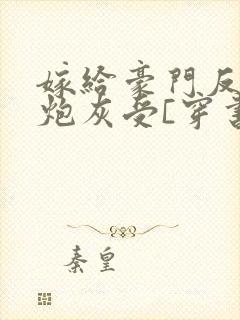 嫁給豪門反
炮灰受[穿書
秦皇